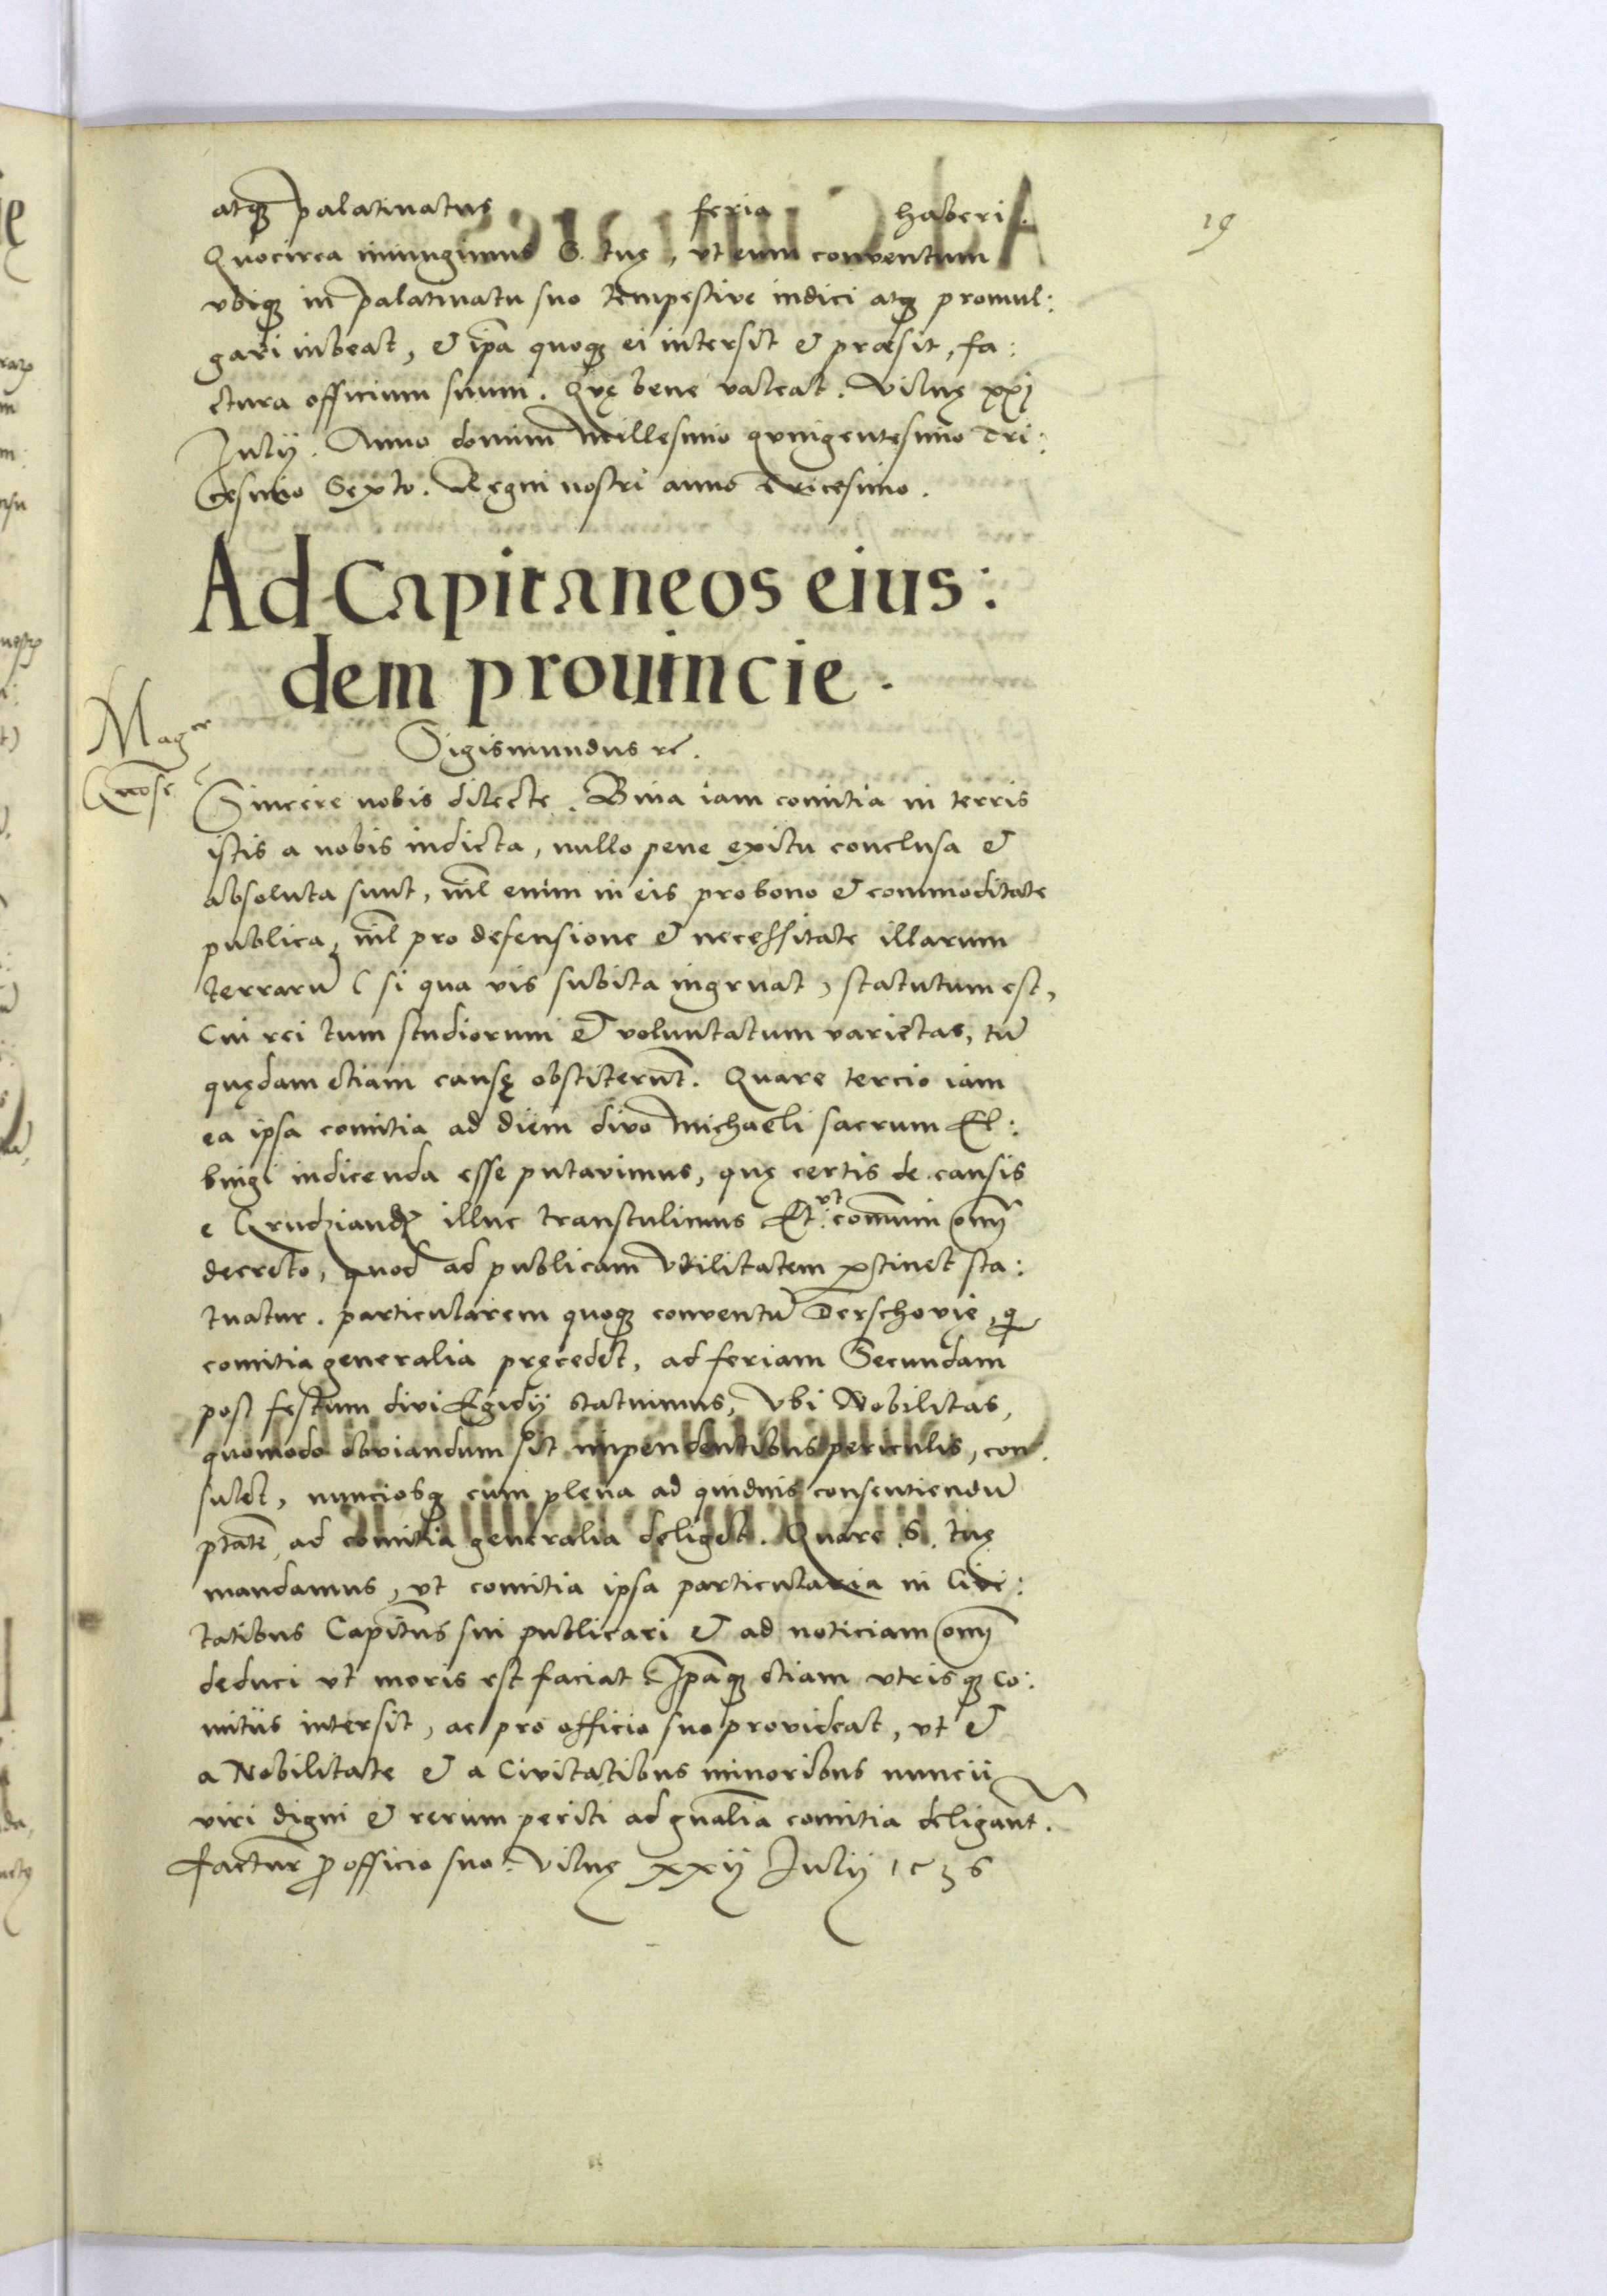 19
atq3 palatinatus feria haberi.
Quocirca iniungimus S. tuę, vt eum conventum
vbiq3 in palatinatu suo tempestive indici atq3 promul:
gari iubeat, & ip̄a quoq3 ei intersit & præsit, fa:
ctura officium suum. Quę bene valeat. Vilnę xxj
July. Anno domini Millesimo quingentesimo Tri:
cesimo Sexto. Regni nostri anno Tricesimo.
Ad Capitaneos eius:
dem prouincie.
Sigismundus rē.
Mag^ce
Gnose
Sincere nobis dilecte. Bina iam comitia in terris
istis a nobis indicta, nullo pene exitu conclusa &
absoluta sunt, nīl enim in eis pro bono & commoditate
publica, nīl pro defensione & necessitate illarum
terrarū (si qua vis subita ingruat) statutum est,
Cui rei tum studiorum & voluntatum varietas, tū
quędam etiam causę obstiterūt. Quare tercio iam
ea ipsa comitia ad diem divo Michaeli sacrum El:
bingi indicenda esse putavimus, quę certis de causis
e Grudziandz illuc transtulimus Et vt com̄uni om̄
decreto, quod ad publicam vtilitatem ptinet sta:
tuatur. particularem quoq3 conventū Derschovię, q
comitia generalia pręcedet, ad feriam Secundam
post festum divi Egidy statuimus, Vbi Nobilitas,
quomodo obviandum sit impendentibus periculis, con
sulet, nunciosq3 cum plena ad quidvis consentiendū
ptatē ad comitia generalia deliget. Quare S. tuę
mandamus, vt comitia ipsa particularia in Civi:
tatibus Capitn̄s sui publicari & ad noticiam om̄
deduci vt moris est faciat Ip̄aq3 etiam vtrisq3 co:
mitiis intersit, ac pro officio suo provideat, vt &
a Nobilitate & a Civitatibus minoribus nuncii
viri digni & rerum periti ad gn̄alia comitia deligant̄.
factur p officio suo. Vilnę xxij July 1536